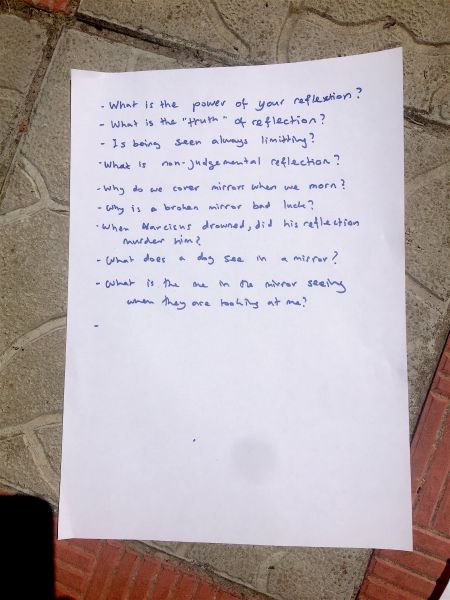 - What is the power of your reflection?
- What is the "truth" of reflection?
- Is being seen always limitting?
- What is non-judgemental reflection?
- Why do we cover mirrors when we morn?
- Why is a broken mirror bad luck?
- When Narcisus drowned, did his reflection
murder him?
- What does a dog see in a mirror?
- What is the me in the mirror seeing
when they are looking at me?
-